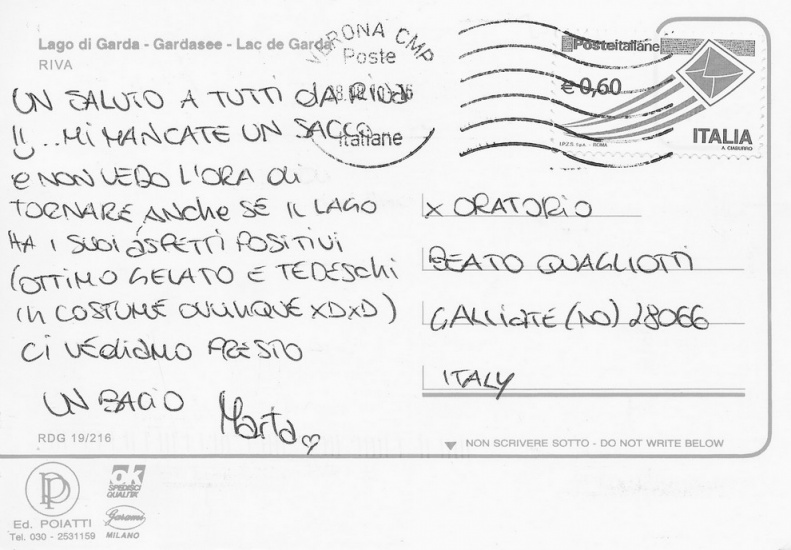 Lago di Garda - Gardasee - Lac de Garda
RIVA
VERONA CMP
Poste
italiane
Posteitaliane
€ 0,60
I.P.Z.S. S.p.A. - ROMA
ITALIA
A. CIABURRO
UN SALUTO A TUTTI DA RIVA
!! ... MI MANCATE UN SACCO
e NON VEDO L'ORA DI
TORNARE ANCHE SE IL LAGO
HA I SUOI ASPETTI POSITIVI
(OTTIMO GELATO E TEDESCHI
IN COSTUME OVUNQUE XDXD)
CI VEDIAMO PRESTO
UN BACIO Marta
X ORATORIO
BEATO QUAGLIOTTI
GALLIATE (NO) 28066
ITALY
RDG 19/216
NON SCRIVERE SOTTO - DO NOT WRITE BELOW
PD
Ed. POIATTI
Tel. 030 - 2531159
OK
SPEDISCI
QUALITA'
Garami
MILANO